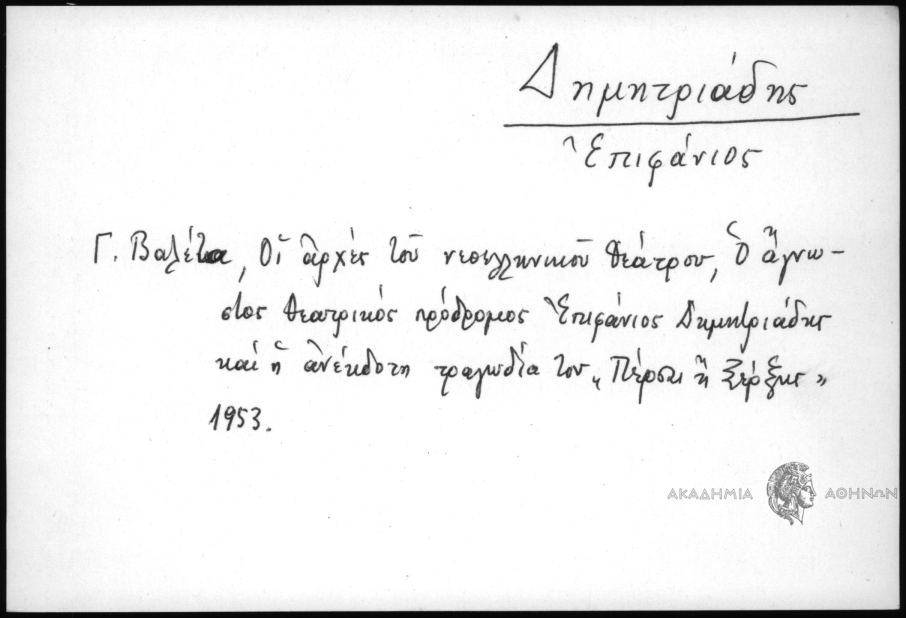 Δημητριάδης
Ἐπιφάνιος
Γ. Βαλέτα, Οἱ ἀρχὲς τοῦ νεοελληνικοῦ θεάτρου, Ὁ ἄγνω-
στος θεατρικὸς πρόδρομος Ἐπιφάνιος Δημητριάδης
καὶ ἡ ἀνέκδοτη τραγωδία του „Πέρσαι ἢ Ξέρξης„
1953.
ΑΚΑΔΗΜΙΑ ΑΘΗΝΩΝ